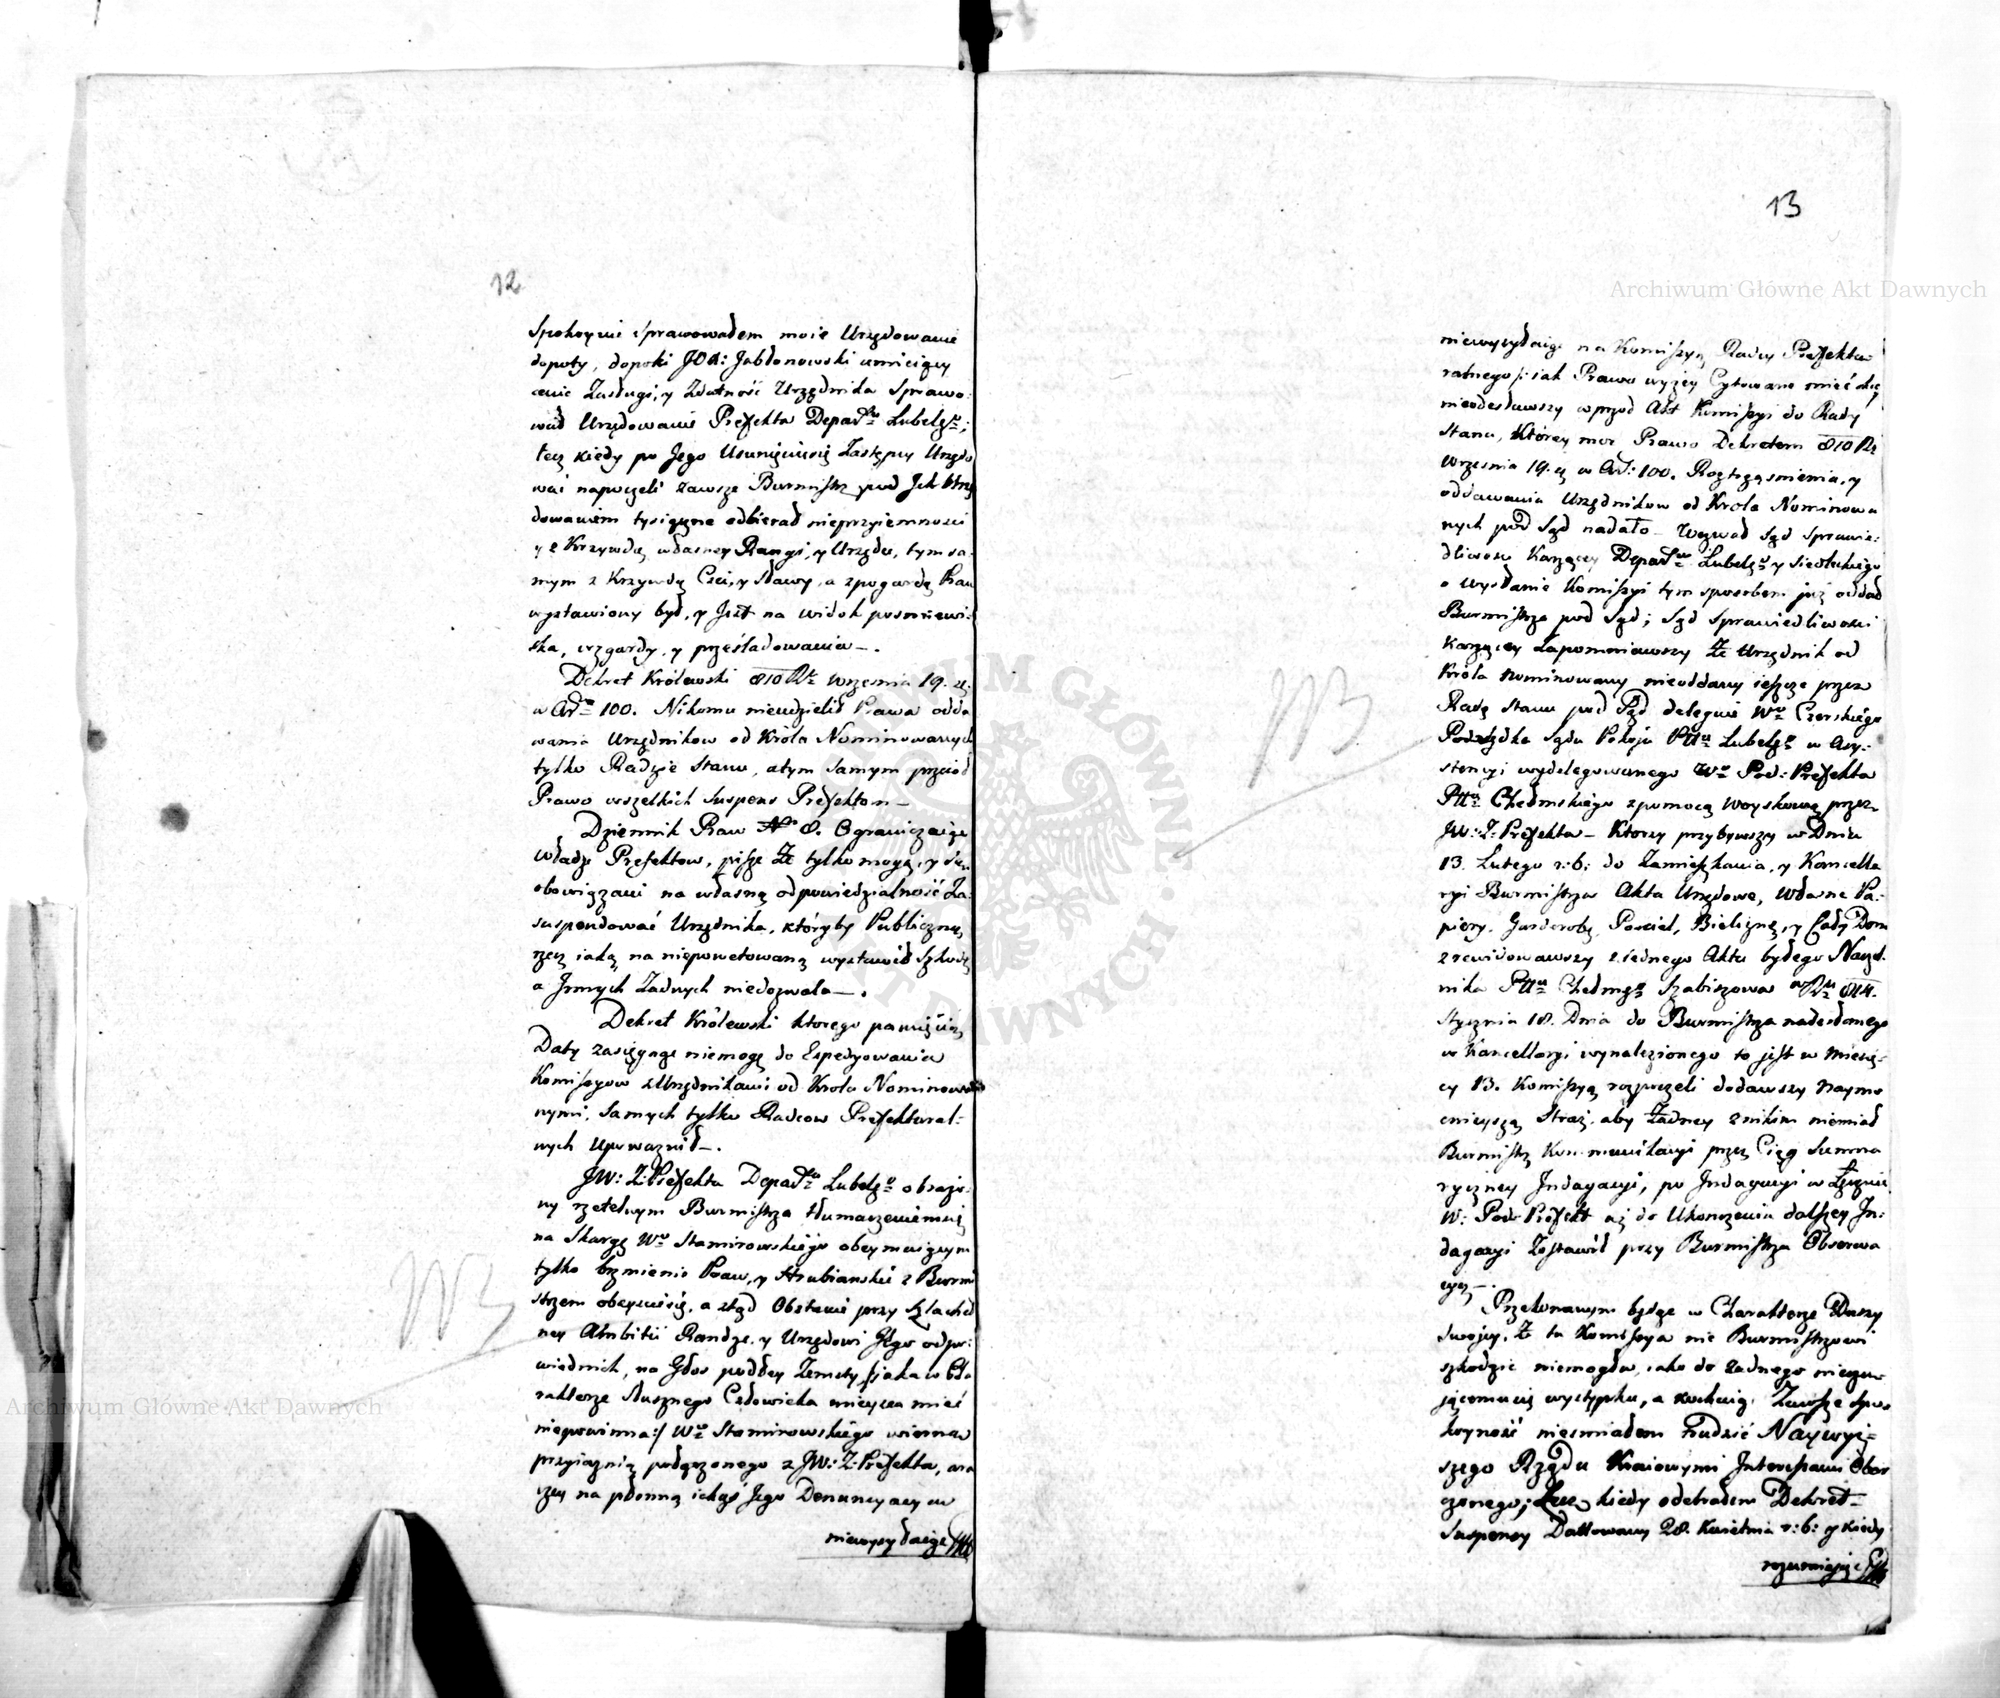 12
Spokoynie sprawowałem moie Urzędowanie
dopoty, dopoki JOX: Jabłonowski umieiący
cenić Zasługi, y Zdatność Urzędnika Sprawo=
wał Urzędowanie Prefekta Depart: Lubelsgo;
lecz kiedy po Jego Usunięciu się Zastępcy Urzędo
wać napoczeli zawsze Burmistrz pod Ich Urzę
dowaniem tysiączne odbierał nieprzyiemności
y z Krzywdą własney Rangi, y Urzędu, tym sa=
mym z Krzywdą Czci, y Sławy, a z pogardą Praw
wystawiony był, y Jest na widok pośmiewi=
ska, wzgardy, y prześladowania —.
Dekret Królewski 810 Rku Wrzesnia 19. d:
w Art: 100. Nikomu nieudzielił Prawa odda
wania Urzędnikow od Króla Nominowanych
tylko Radzie Stanu, a tym samym przeciął
Prawo wszelkich Suspens Prefektom —
Dziennik Praw No 8. Ograniczaiąc
władzę Prefektow, pisze Że tylko mogą, y są
obowiązani na własną odpowiedzialność Za=
suspendować Urzędnika, któryby Publiczną
rzecz iaką na niepowetowaną wystawił Szkodę
a Innych Żadnych niedozwala —.
Dekret Królewski ktorego pamięcią
Daty zasięgnąć niemogę do Expedyowania
Komissyow z Urzędnikami od Krola Nominowa
nymi, Samych tylko Radcow Prefektural=
nych upoważnił —.
JW: Z: Prefekta Depart: Lubelsgo obrażo=
ny rzetelnym Burmistrza tłumaczeniem się
na Skargę Wgo Stamirowskiego obeymuiącym
tylko brzmienie Praw, y Hrubianskie z Burmi
strzem obeyscie się, a ztąd Obstanie przy Szlachet
ney Ambitii Randze, y Urzędowi Jego odpo=
wiednich, na Głos podłey Zemsty /: iaka w Cha
rakterze Słusznego Człowieka mieysca mieć
niepowinna :/ Wgo Stamirowskiego wierną
przyiaźnią połączonego z JW: Z: Prefekta, ra
czey na płonną iakąś Jego Denuncyacyą
niewysyłaiąc
13
niewysyłaiąc na Komissyą Radcy Prefektu
ralnego /: iak Prawo wyżey Cytowane mieć chce
nieodesławszy wprzod Akt Komissyi do Rady
Stanu, Ktorey moc Prawo Dekretem 810 Rku
Wrzesnia 19. d: w Art: 100. Roztrząsnienia, y
oddawania Urzędnikow od Króla Nominowa
nych pod Sąd nadało — Wezwał Sąd Sprawie=
dliwosci Karzącey Depart: Lubelsgo y Siedleckiego
o wysłanie Komissyi tym sposobem już oddał
Burmistrza pod Sąd; Sąd Sprawiedliwosci
Karzącey Zapomniawszy Że Urzędnik od
Króla Nominowany nieoddany ieszcze przez
Radę Stanu pod Sąd deleguie Wgo Czerskiego
Podsędka Sądu Pokoju Pttu Lubelsgo w Asy=
stencyi wydelegowanego Wgo Pod: Prefekta
Pttu Chełmskiego z pomocą Woyskową przez
JW: Z: Prefekta — Ktorzy przybywszy w Dniu
13. Lutego r: b: do Zamieszkania, y Kancella
ryi Burmistrza Akta Urzędowe, własne Pa=
piery, Garderobę, Posciel, Bieliznę, y Cały Dom
zrewidowawszy z iednego Aktu byłego Naczel=
nika Pttu Chełmsgo Szabiszowa w Rku 814.
Stycznia 18. Dnia do Burmistrza nadesłanego
w Kancellaryi wynalezionego to jest w Miesią=
cy 13. Komissyą rozpoczeli dodawszy naymo
cnieyszą Straż, aby Żadney z nikim niemiał
Burmistrz Kommunikacyi przez Ciąg Summa
ryczney Indagacyi, po Indagacyi w Łęcznie
W: Pod: Prefekt aż do Ukonczenia dalszey In=
dagacyi Zostawił przy Burmistrzu Obserwa
cyą —.
Przekonanym będąc w Charakterze Duszy
Swojey, Że ta Komissya nic Burmistrzowi
szkodzić niemogła, iako do żadnego nieczu=
jącemu się występku, a kochaiąc Zawsze Spo=
koyność niesmiałem trudzić Naywyż=
szego Rządu Kraiowymi Interessami Obar
czonego; Lecz kiedy odebrałem Dekret
Suspensy Dattowany 28. Kwietnia r: b: y kiedy
rozumieją
Archiwum Główne Akt Dawnych
Archiwum Główne Akt Dawnych